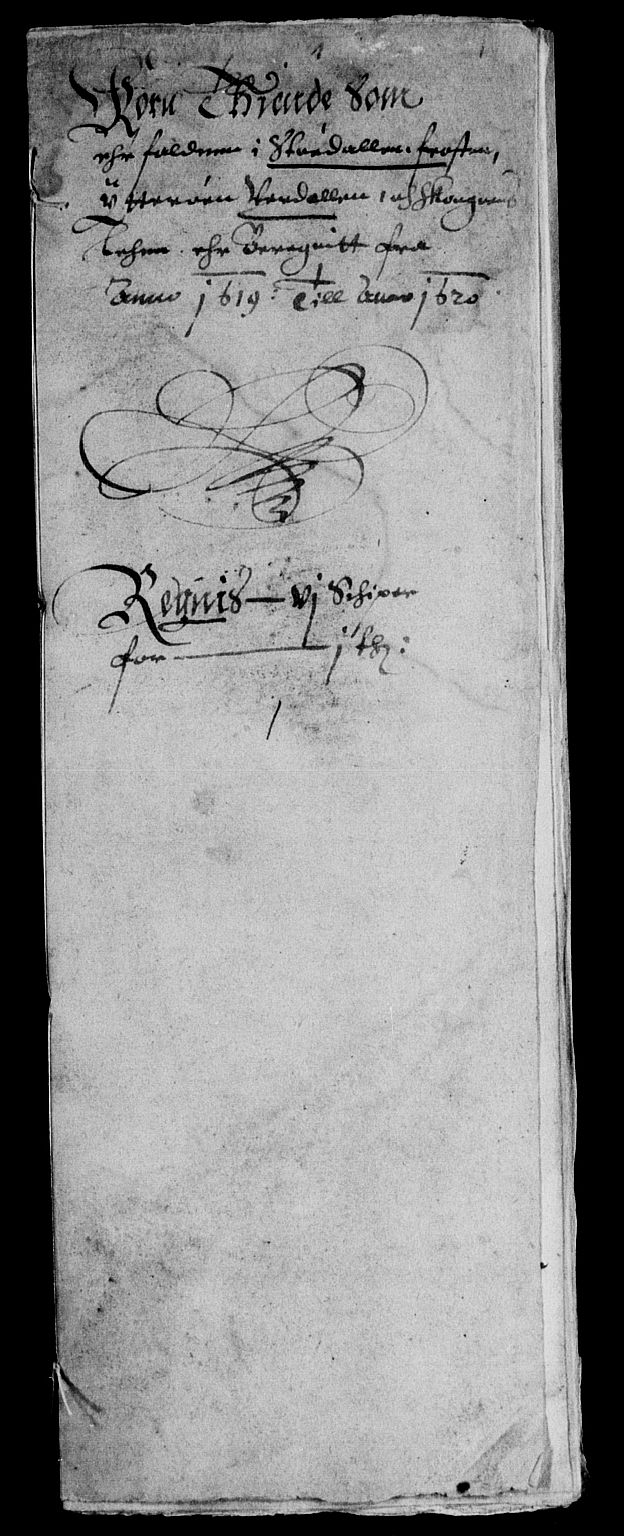 Korn Thiende Som
ehr falden i Størdallen, frosten,
ÿtterøen Verdallen, och Skongnens
Lehen. ehr Beregnitt fra
Anno 1619: Till Anno 1620
Regnis — vj Schiper
for — j thz: